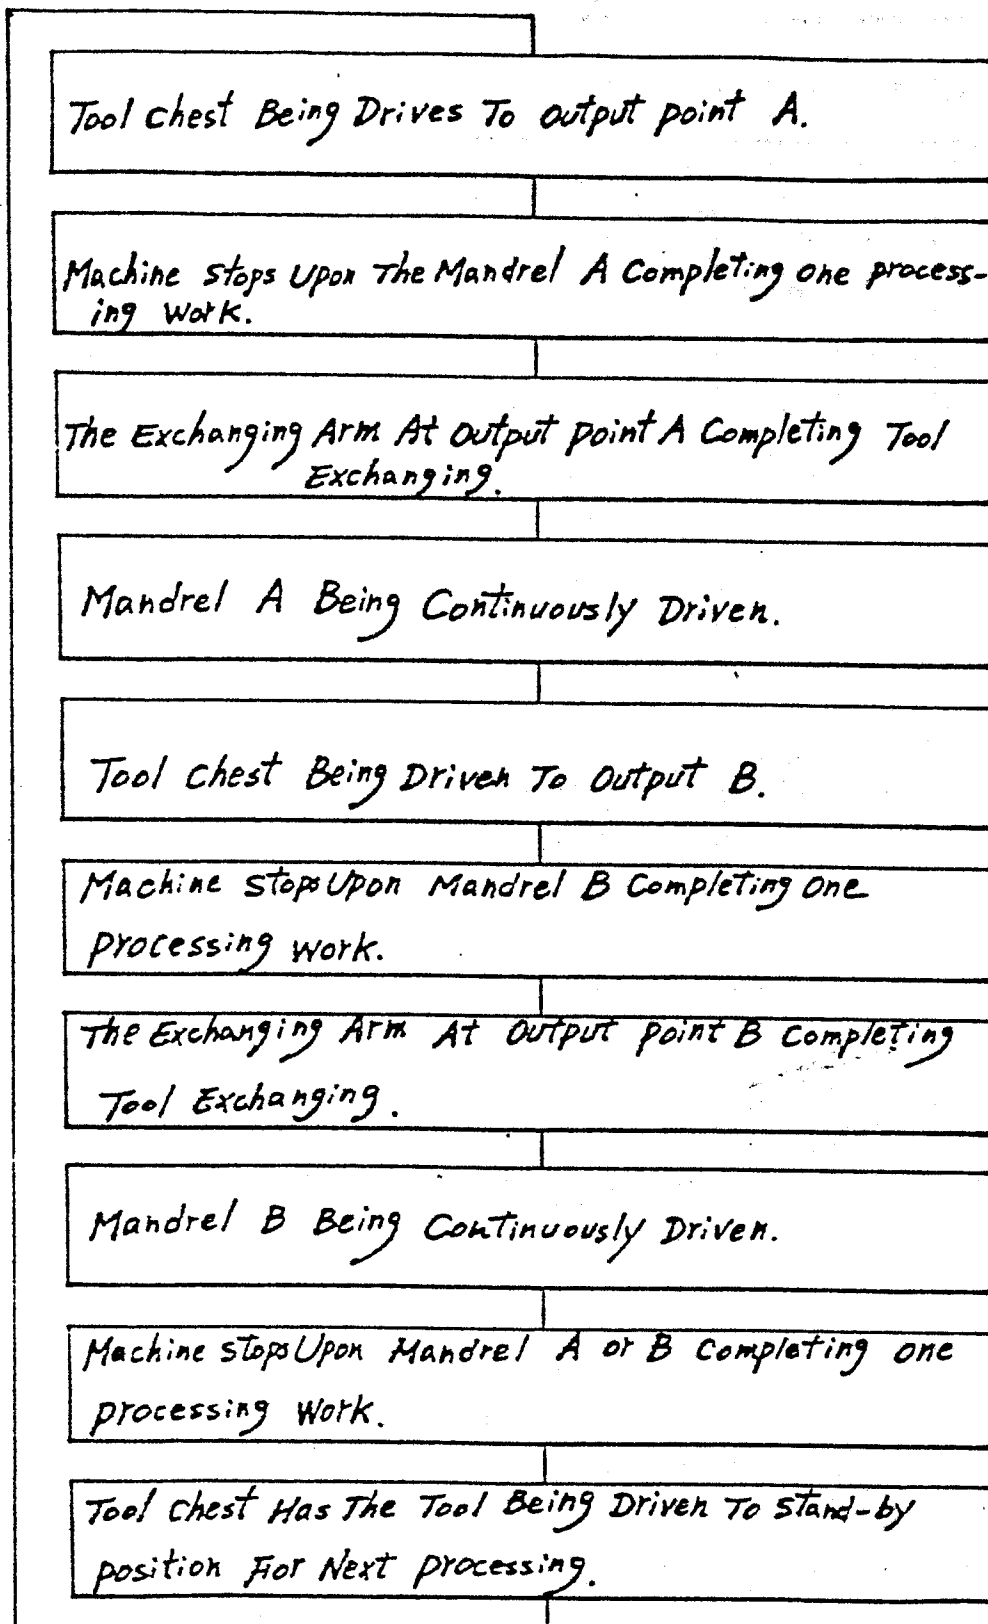 Tool Chest Being Drives To Output point A.
Machine Stops Upon The Mandrel A Completing One process-
ing Work.
The Exchanging Arm At Output point A Completing Tool
Exchanging.
Mandrel A Being Continuously Driven.
Tool Chest Being Driven To Output B.
Machine Stops Upon Mandrel B Completing One
processing Work.
The Exchanging Arm At Output point B Completing
Tool Exchanging.
Mandrel B Being Continuously Driven.
Machine Stops Upon Mandrel A or B Completing One
processing Work.
Tool Chest Has The Tool Being Driven To Stand-by
position For Next processing.